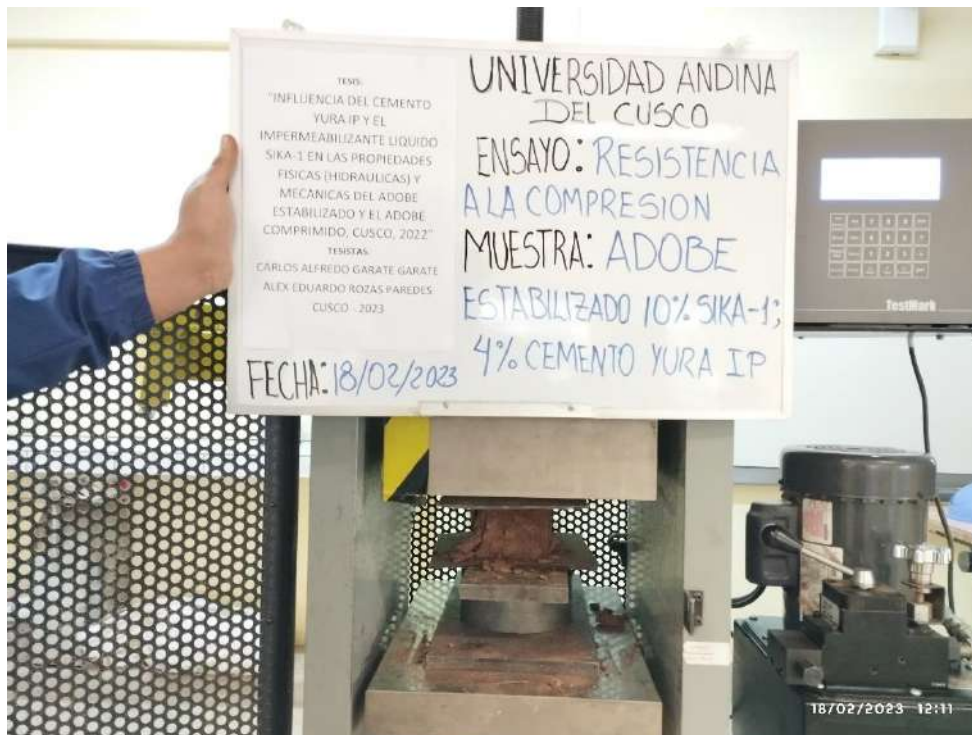 TESIS:
"INFLUENCIA DEL CEMENTO
YURA IP Y EL
IMPERMEABILIZANTE LIQUIDO
SIKA-1 EN LAS PROPIEDADES
FISICAS (HIDRAULICAS) Y
MECANICAS DEL ADOBE
ESTABILIZADO Y EL ADOBE
COMPRIMIDO, CUSCO, 2022"
TESISTAS:
CARLOS ALFREDO GARATE GARATE
ALEX EDUARDO ROZAS PAREDES
CUSCO - 2023
FECHA: 18/02/2023
UNIVERSIDAD ANDINA
DEL CUSCO
ENSAYO: RESISTENCIA
A LA COMPRESION
MUESTRA: ADOBE
ESTABILIZADO 10% SIKA-1;
4% CEMENTO YURA IP
TestMark
18/02/2023 12:11